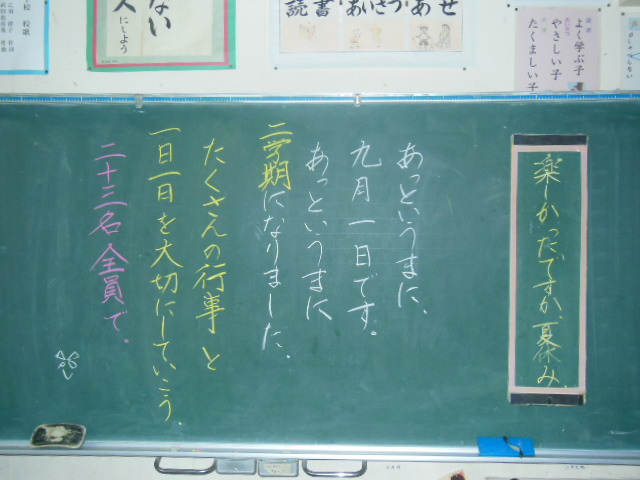 楽しかったですか、夏休み、
あっというまに、
九月一日です。
あっというまに
二学期になりました、
たくさんの行事と
一日一日を大切にしていこう、
二十三名全員で。
よく学ぶ子
やさしい子
たくましい子
読書 あいさつ あせ
ない
人にしよう
校歌